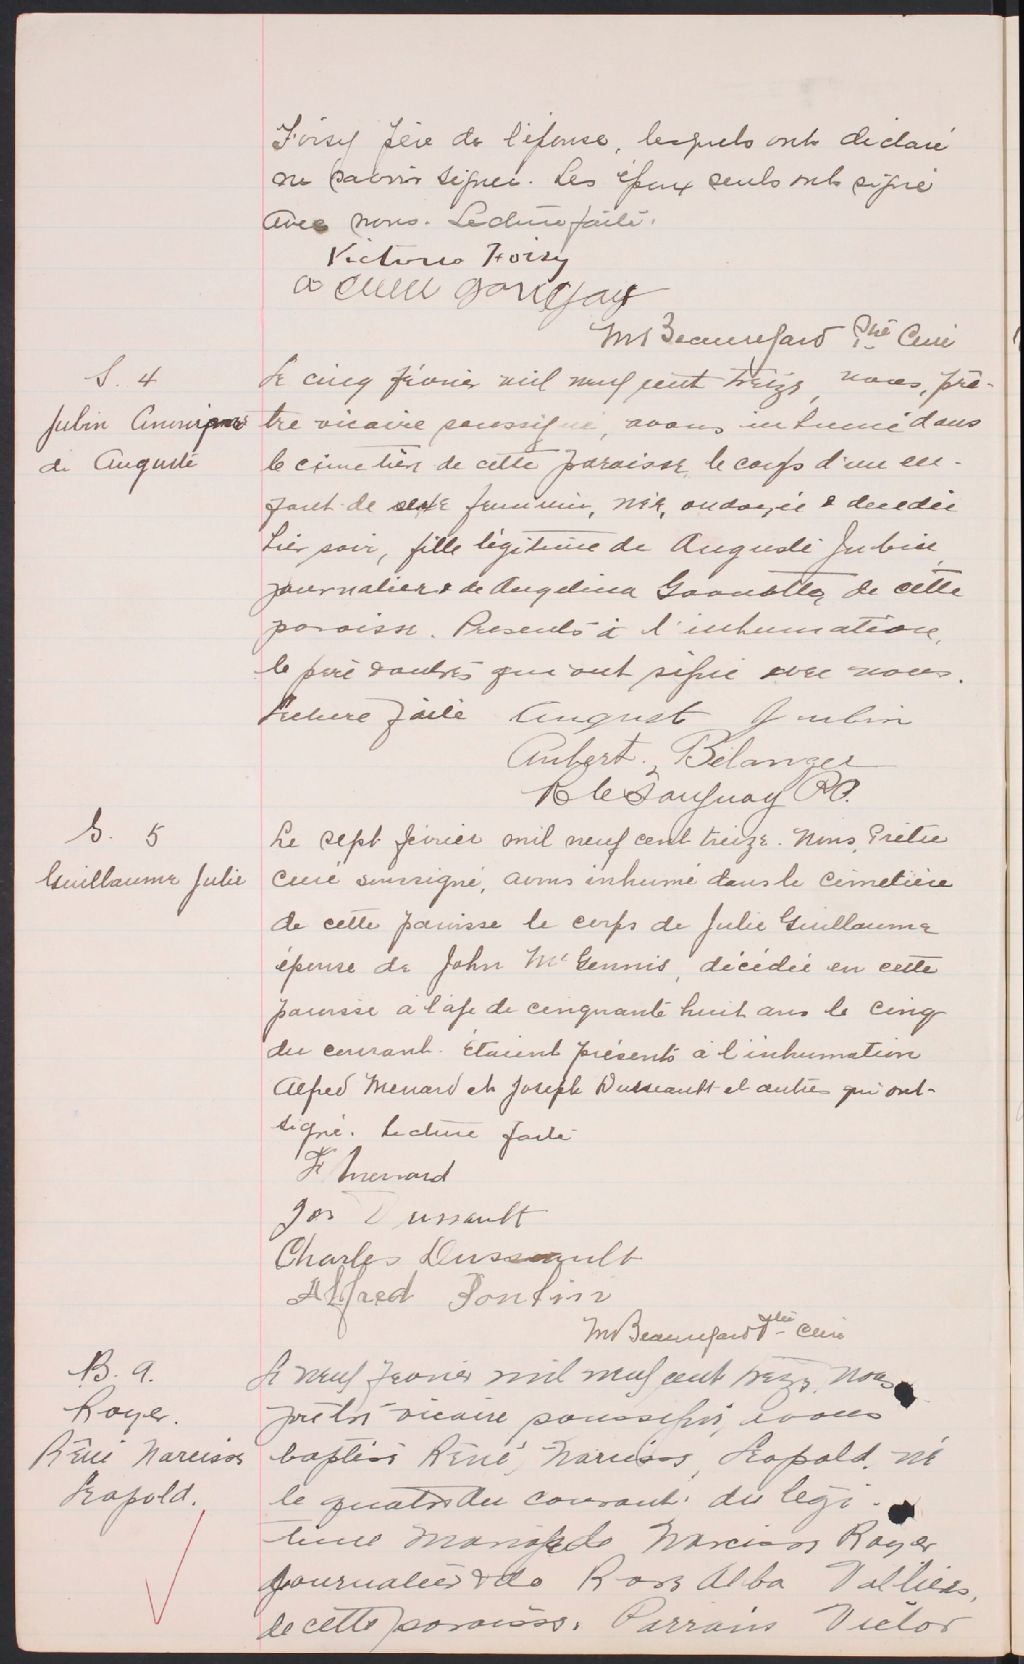 Foisy père de l'épouse, lesquels ont déclaré
ne savoir signer. Les époux seuls ont signé
avec nous. Lecture faite.
Victoria Foisy
M Beauregard Ptre Curé
S. 4
Jubin Anonyme
de Auguste
Le cinq février mil neuf cent treize, nous, prê-
tre vicaire soussigné, avons inhumé dans
le cimetière de cette paroisse, le corps d'un en-
fant de sexe féminin, née, ondoyée & décédée
hier soir, fille légitime de Auguste Jubin
journalier & de Angelina de cette
paroisse. Présents à l'inhumation,
le père & autres qui ont signé avec nous.
Lecture faite August Jubin
Aubert Bélanger
S. 5
Guillaume Julie
Le sept février mil neuf cent treize. Nous, Prêtre
curé soussigné, avons inhumé dans le cimetière
de cette paroisse le corps de Julie Guillaume
épouse de John McGennis, décédée en cette
paroisse à l'âge de cinquante huit ans le cinq
du courant. Étaient présents à l'inhumation
Alfred Menard et Joseph Dussault et autres qui ont
signé. Lecture faite
F Menard
Jos Dussault
Charles Dussault
Alfred Pontin
M Beauregard Ptre Curé
B. 9.
Royer.
René Narcisse
Léopold.
Le neuf février mil neuf cent treize, nous
prêtre vicaire soussigné, avons
baptisé René, Narcisse, Léopold, né
le quatre du courant, du légi-
time mariage de Narcisse Royer
journalier & de Rose Alba Vallières,
de cette paroisse. Parrain Victor